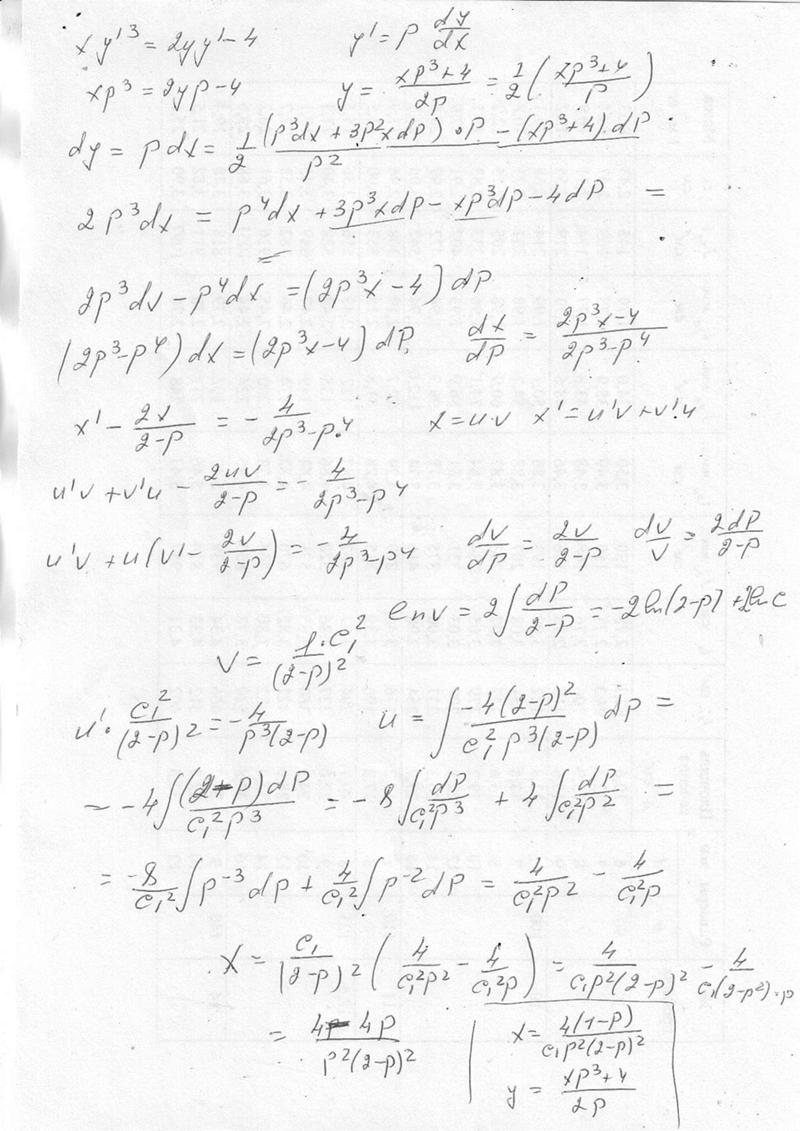 xy'³ = 2yy' - 4    y' = p  dy/dx
xp³ = 2yp - 4    y = (xp³+4)/(2p) = 1/2 ( (xp³+4)/p )
dy = p dx = 1/2 ((p³dx + 3p²x dp)·p - (xp³+4)·dp)/p²
2p³dx = p⁴dx + 3p³xdp - xp³dp - 4dp =
=
2p³dx - p⁴dx = (2p³x - 4) dp
(2p³-p⁴) dx = (2p³x-4) dp    dx/dp = (2p³x-4)/(2p³-p⁴)
x' - 2x/(2-p) = - 4/(2p³-p⁴)    x = uv  x' = u'v + v'u
u'v + v'u - 2uv/(2-p) = - 4/(2p³-p⁴)
u'v + u(v' - 2v/(2-p)) = - 4/(2p³-p⁴)    dv/dp = 2v/(2-p)    dv/v = 2dp/(2-p)
ln v = 2∫ dp/(2-p) = -2ln(2-p) + 2ln c
v = 1·c₁²/(2-p)²
u'· c₁²/(2-p)² = - 4/(p³(2-p))    u = ∫ -4(2-p)²/(c₁²p³(2-p)) dp =
= -4∫ (2-p)dp/(c₁²p³) = -8∫ dp/(c₁²p³) + 4∫ dp/(c₁²p²) =
= -8/c₁² ∫p⁻³dp + 4/c₁² ∫p⁻²dp = 4/(c₁²p²) - 4/(c₁²p)
x = c₁/(2-p)² ( 4/(c₁²p²) - 4/(c₁²p) ) = 4/(c₁p²(2-p)²) - 4/(c₁(2-p²)·p)
= (4 - 4p)/(p²(2-p)²)    x = 4(1-p)/(c₁p²(2-p)²)
y = (xp³+4)/(2p)